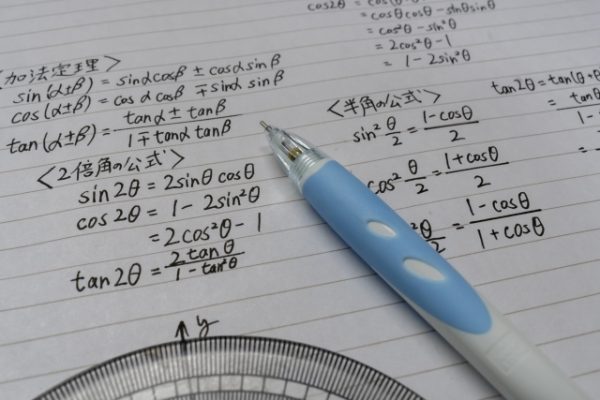 cos2θ =
= cosθcosθ - sinθsinθ
= cos²θ - sin²θ
= 2cos²θ - 1
= 1 - 2sin²θ
〈加法定理〉
sin(α±β) = sinαcosβ ± cosαsinβ
cos(α±β) = cosα cosβ ∓ sinα sinβ
tan(α±β) = \frac{tanα ± tanβ}{1∓tanα tanβ}
〈2倍角の公式〉
sin2θ = 2sinθ cosθ
cos2θ = 1 - 2sin²θ
= 2cos²θ - 1
tan2θ = \frac{2tanθ}{1 - tan²θ}
y
〈半角の公式〉
sin²\frac{θ}{2} = \frac{1-cosθ}{2}
cos²\frac{θ}{2} = \frac{1+cosθ}{2}
²\frac{θ}{2} = \frac{1-cosθ}{1+cosθ}
tan2θ = tan(θ+
= 
=